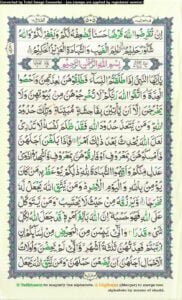 Converted by Total Image Converter - (no stamps are applied by registered version)
إِنْ تُقْرِضُوا اللّٰهَ قَرْضًا حَسَنًا يُّضٰعِفْهُ لَكُمْ وَيَغْفِرْ لَكُمْ وَاللّٰهُ
شَكُوْرٌ حَلِيْمٌ عٰلِمُ الْغَيْبِ وَالشَّهَادَةِ الْعَزِيْزُ الْحَكِيْمُ
بِسْمِ اللّٰهِ الرَّحْمٰنِ الرَّحِيْمِ
يٰٓاَيُّهَا النَّبِيُّ اِذَا طَلَّقْتُمُ النِّسَآءَ فَطَلِّقُوْهُنَّ لِعِدَّتِهِنَّ وَاَحْصُوا
الْعِدَّةَ وَاتَّقُوا اللّٰهَ رَبَّكُمْ لَا تُخْرِجُوْهُنَّ مِنْ بُيُوْتِهِنَّ وَلَا
يَخْرُجْنَ اِلَّآ اَنْ يَّاْتِيْنَ بِفَاحِشَةٍ مُّبَيِّنَةٍ وَتِلْكَ حُدُوْدُ
اللّٰهِ وَمَنْ يَّتَعَدَّ حُدُوْدَ اللّٰهِ فَقَدْ ظَلَمَ نَفْسَهُ لَا تَدْرِيْ لَعَلَّ
اللّٰهَ يُحْدِثُ بَعْدَ ذٰلِكَ اَمْرًا فَاِذَا بَلَغْنَ اَجَلَهُنَّ
فَاَمْسِكُوْهُنَّ بِمَعْرُوْفٍ اَوْ فَارِقُوْهُنَّ بِمَعْرُوْفٍ وَّاَشْهِدُوْا ذَوَيْ
عَدْلٍ مِّنْكُمْ وَاَقِيْمُوا الشَّهَادَةَ لِلّٰهِ ذٰلِكُمْ يُوْعَظُ بِهٖ مَنْ كَانَ
يُؤْمِنُ بِاللّٰهِ وَالْيَوْمِ الْاٰخِرِ وَمَنْ يَّتَّقِ اللّٰهَ يَجْعَلْ لَّهُ
مَخْرَجًا وَّيَرْزُقْهُ مِنْ حَيْثُ لَا يَحْتَسِبُ وَمَنْ يَّتَوَكَّلْ
عَلَى اللّٰهِ فَهُوَ حَسْبُهُ اِنَّ اللّٰهَ بَالِغُ اَمْرِهٖ قَدْ جَعَلَ اللّٰهُ لِكُلِّ
شَيْءٍ قَدْرًا وَالّٰٓـِٔيْ يَئِسْنَ مِنَ الْمَحِيْضِ مِنْ نِّسَآئِكُمْ اِنِ
ارْتَبْتُمْ فَعِدَّتُهُنَّ ثَلٰثَةُ اَشْهُرٍ وَّالّٰٓـِٔيْ لَمْ يَحِضْنَ وَاُولَاتُ
الْاَحْمَالِ اَجَلُهُنَّ اَنْ يَّضَعْنَ حَمْلَهُنَّ وَمَنْ يَّتَّقِ اللّٰهَ يَجْعَلْ